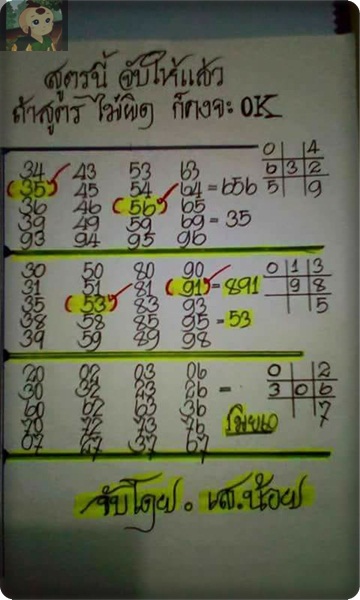 สูตรนี้ จับให้แล้ว
ถ้าสูตร ไม่ผิด ก็คงจะ OK
0 4
6 3 2
5 9
34 43 53 63
35 45 54 64 = 656
36 46 56 65
39 49 59 69 = 35
93 94 95 96
30 50 80 90 0 1 3
31 51 81 91 = 891 9 8
35 53 83 93 5
38 58 85 95 = 53
39 59 89 98
20 02 03 06 0 2
30 32 23 26 = 3 0 6
60 62 63 36 7
70 72 73 76
07 27 37 67
จับโดย. เส.น้อย